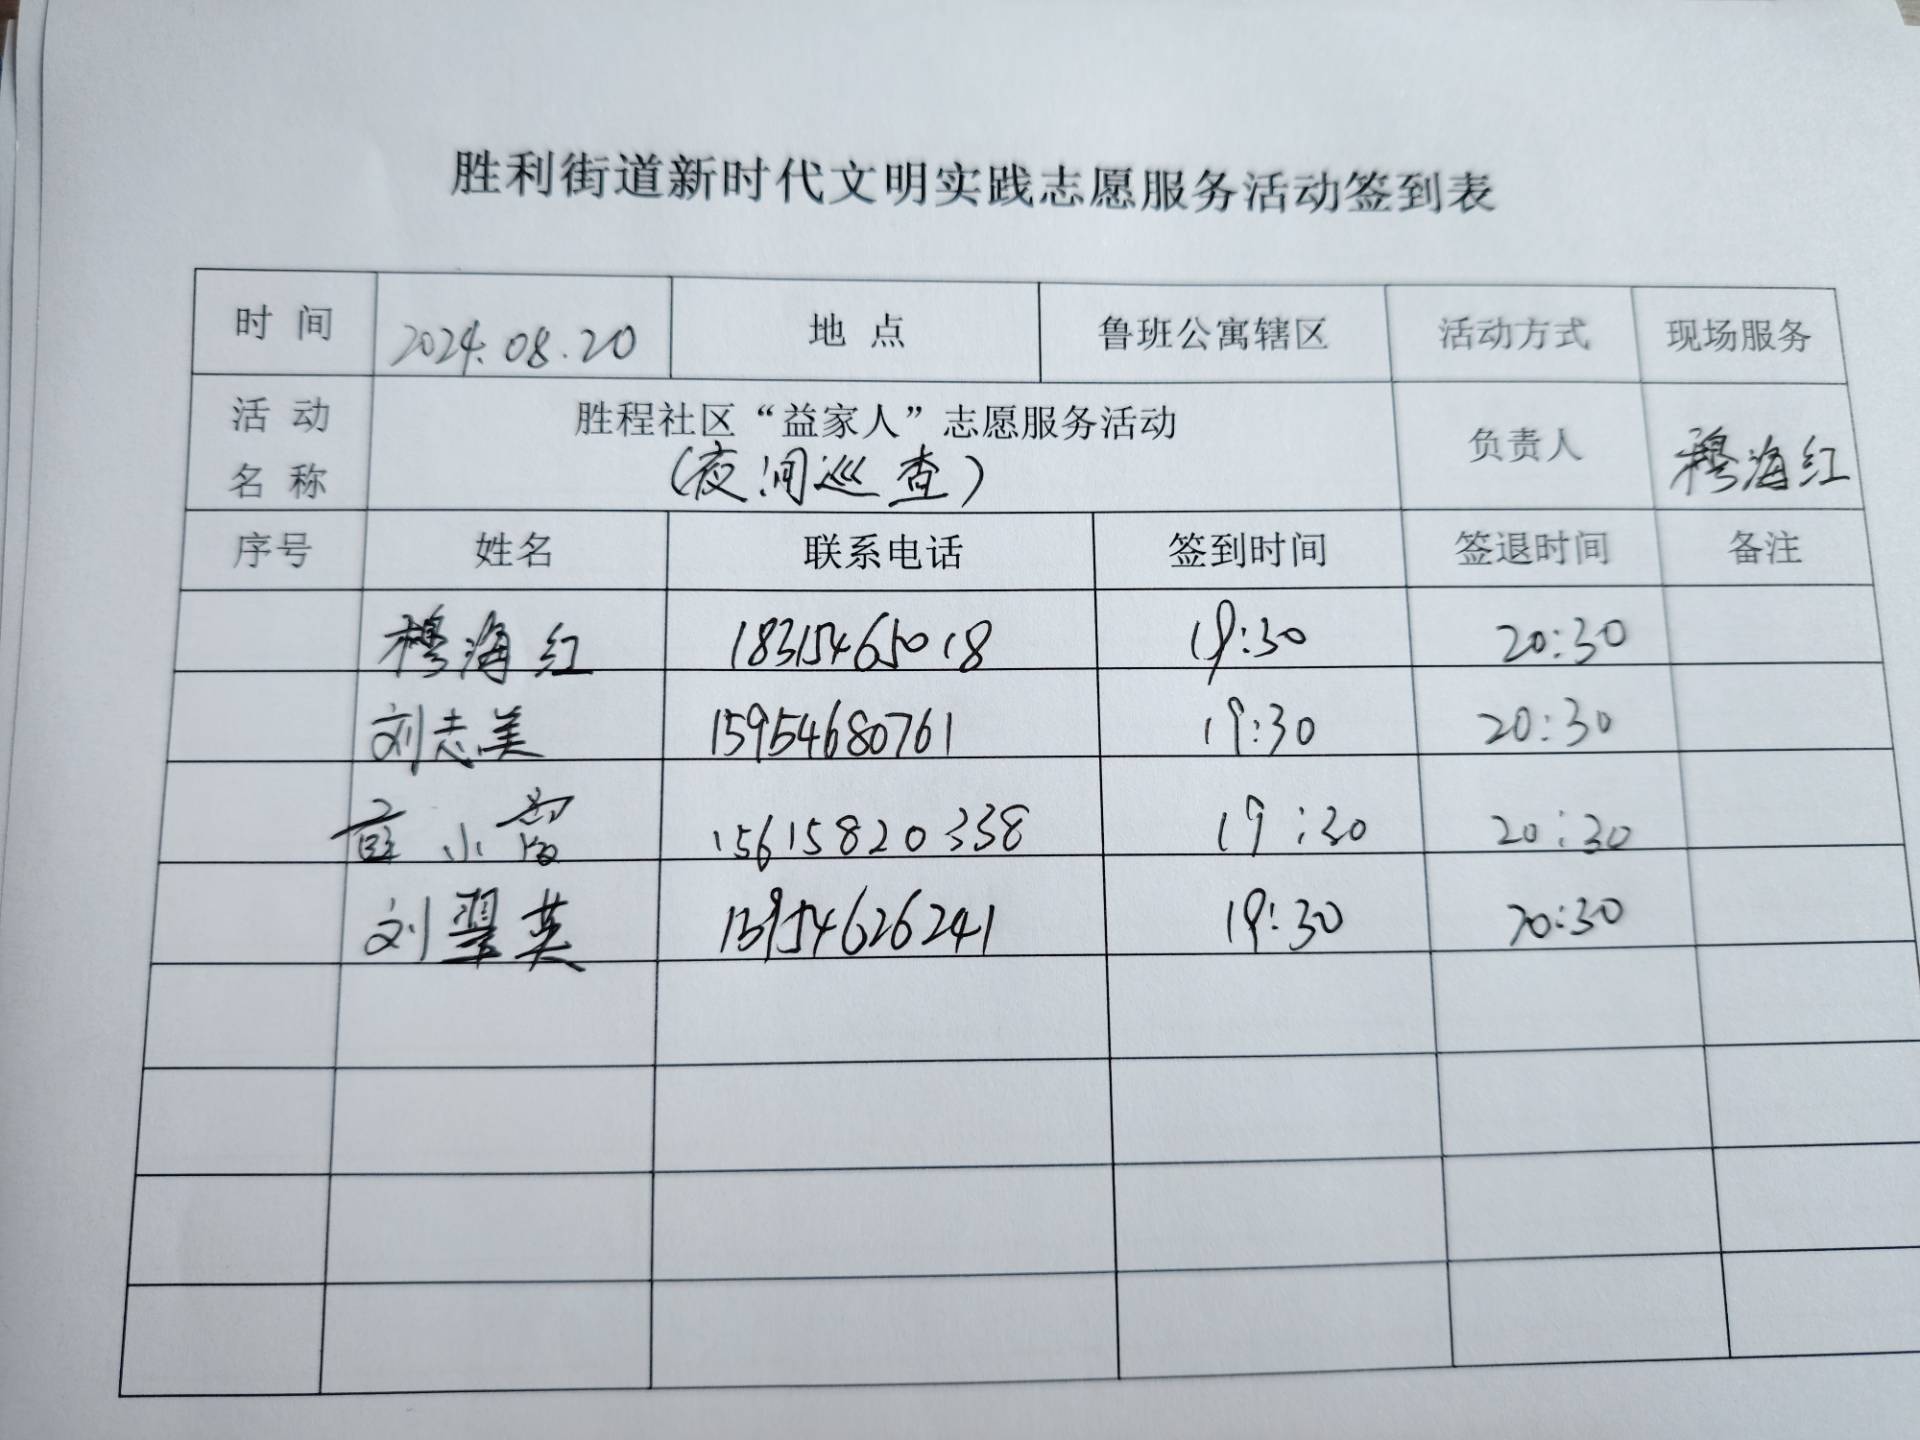 胜利街道新时代文明实践志愿服务活动签到表
时 间 2024.08.20 地 点 鲁班公寓辖区 活动方式 现场服务
活 动 名 称 胜程社区“益家人”志愿服务活动 负责人 穆海红
(夜间巡查)
序号 姓名 联系电话 签到时间 签退时间 备注
穆海红 18315465018 19:30 20:30
刘志美 15954680761 19:30 20:30
小 15615820338 19:30 20:30
刘翠英 13954626241 19:30 20:30